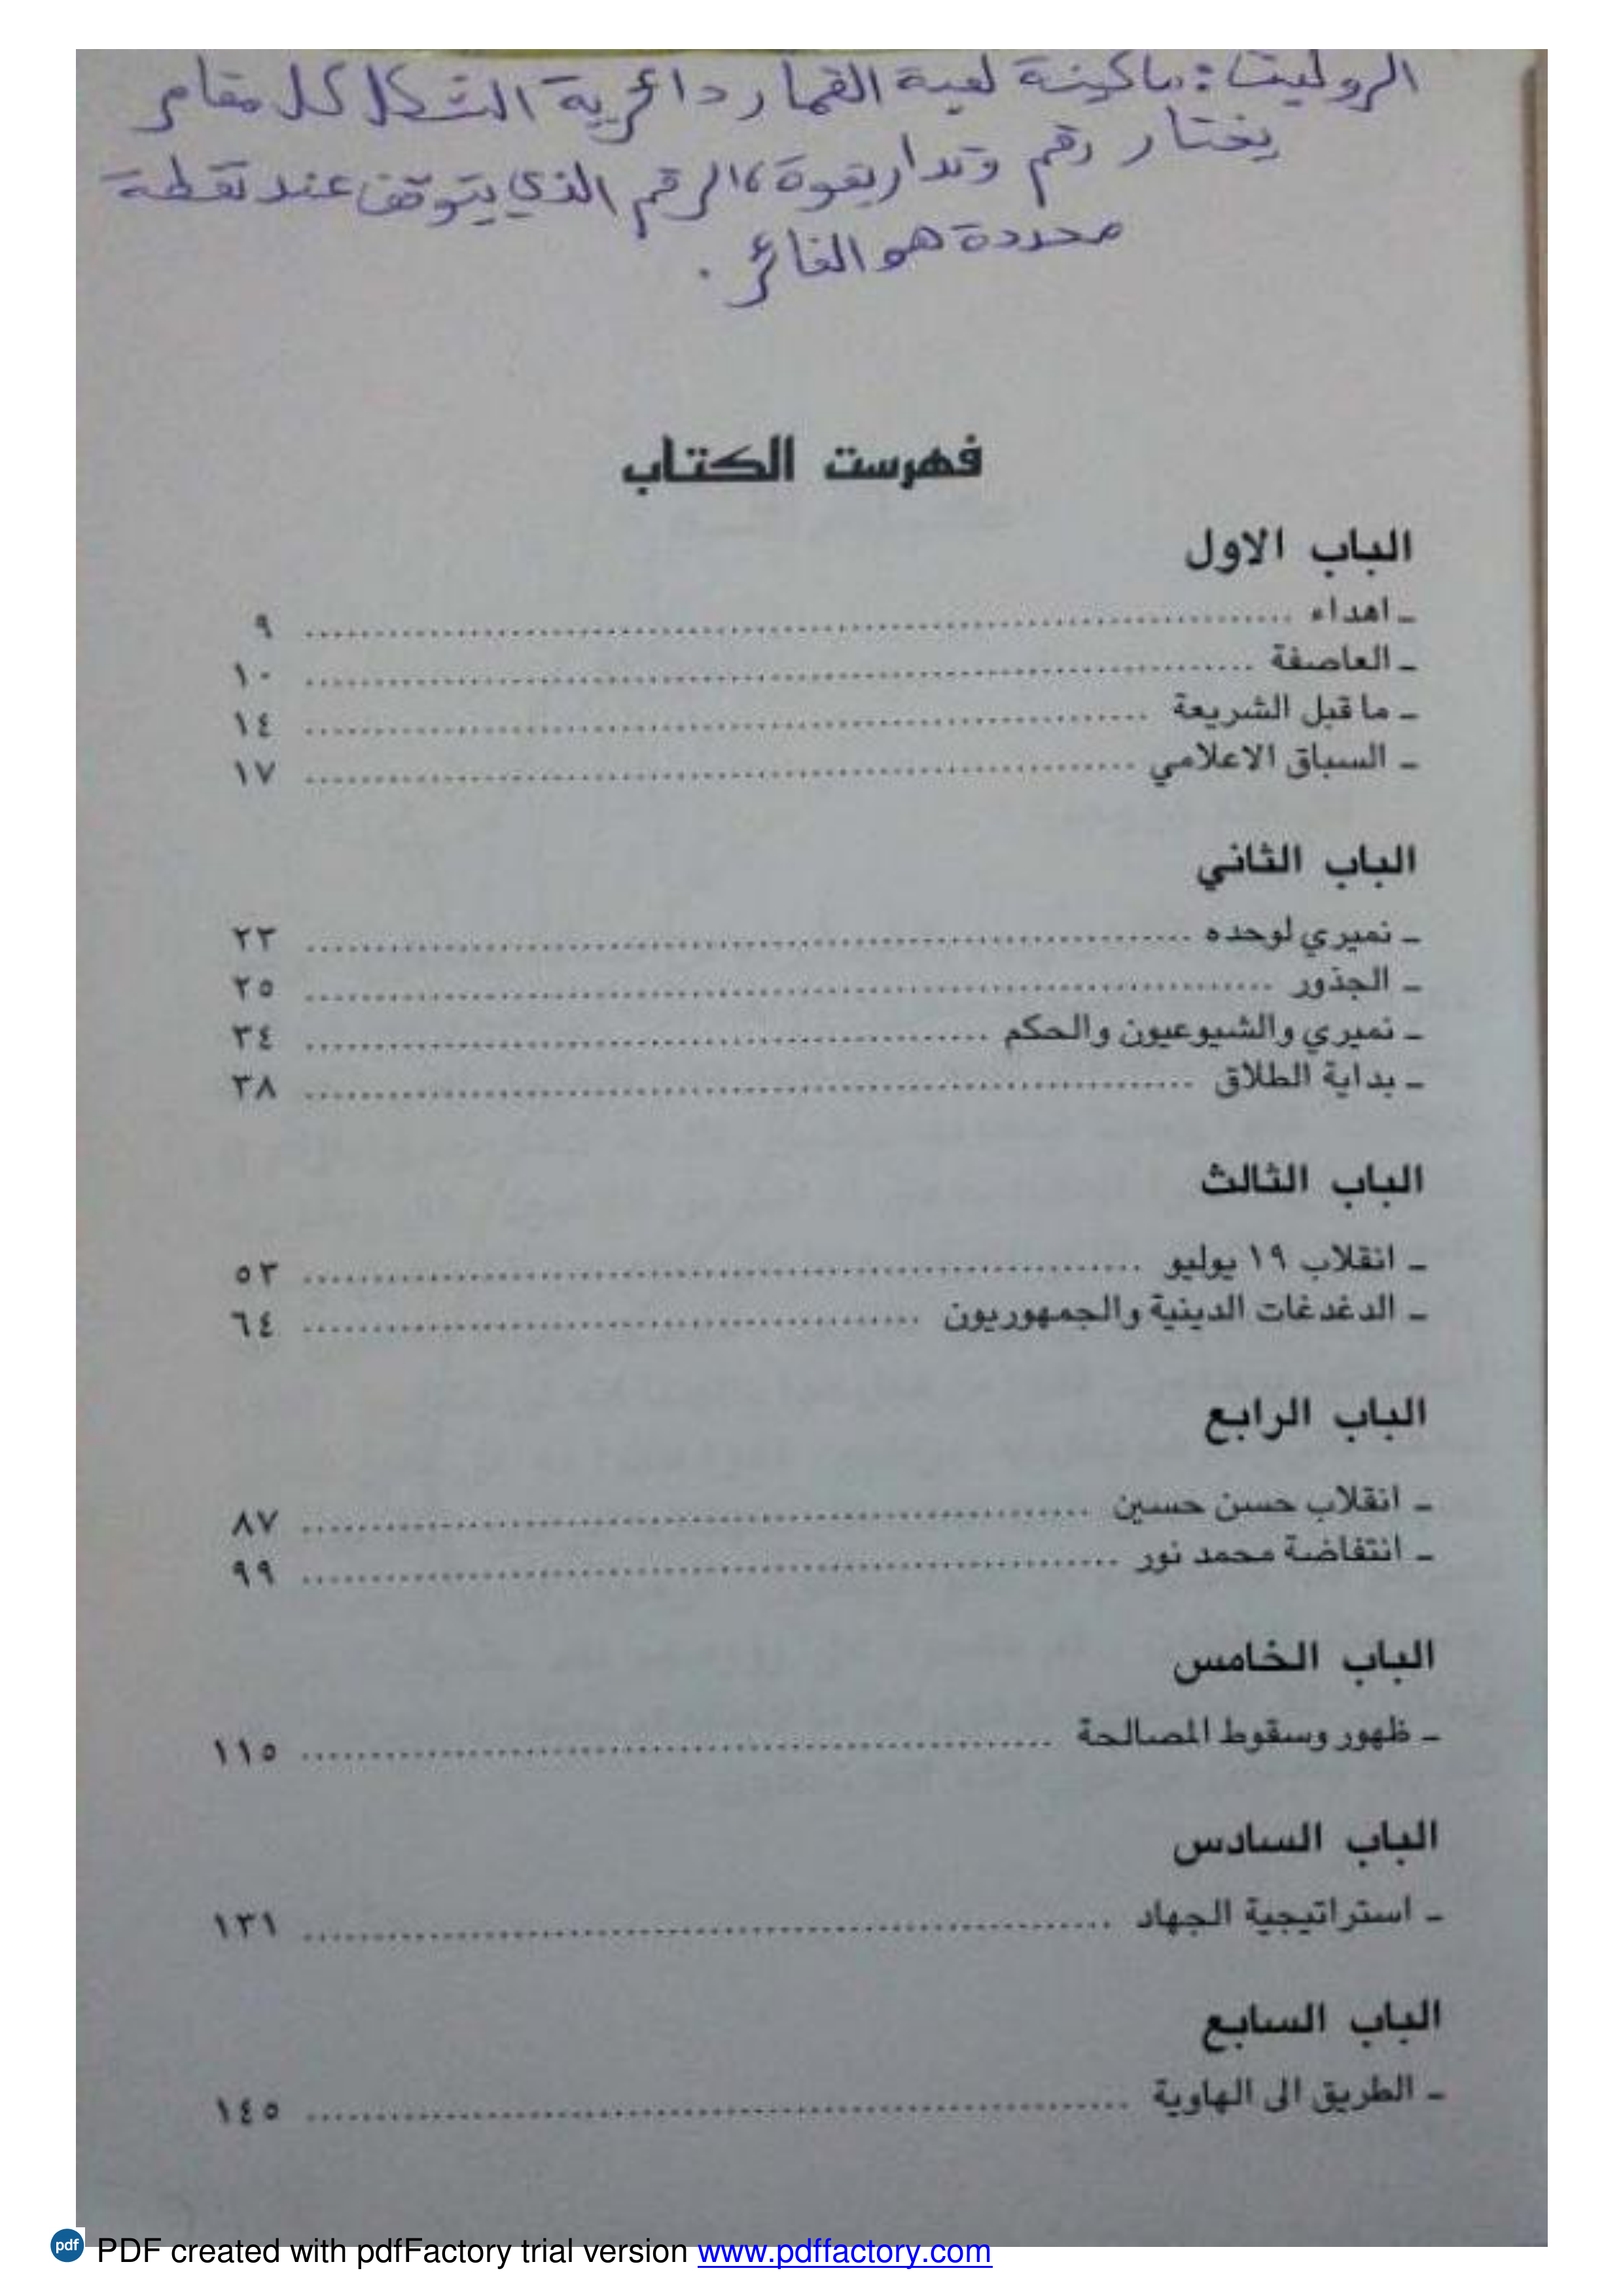 الروليت: ماكينة لعبة القمار دائرية الشكل كل مقامر
يختار رقم وتدار بقوة، الرقم الذي يتوقف عند نقطة
محددة هو الفائز.
فهرست الكتاب
الباب الاول
ـ اهداء ........ ٩
ـ العاصفة ........ ١٠
ـ ما قبل الشريعة ........ ١٤
ـ السباق الاعلامي ........ ١٧
الباب الثاني
ـ نميري لوحده ........ ٢٣
ـ الجذور ........ ٢٥
ـ نميري والشيوعيون والحكم ........ ٣٤
ـ بداية الطلاق ........ ٣٨
الباب الثالث
ـ انقلاب ١٩ يوليو ........ ٥٣
ـ الدغدغات الدينية والجمهوريون ........ ٦٤
الباب الرابع
ـ انقلاب حسن حسين ........ ٨٧
ـ انتفاضة محمد نور ........ ٩٩
الباب الخامس
ـ ظهور وسقوط المصالحة ........ ١١٥
الباب السادس
ـ استراتيجية الجهاد ........ ١٣١
الباب السابع
ـ الطريق الى الهاوية ........ ١٤٥
pdf PDF created with pdfFactory trial version www.pdffactory.com